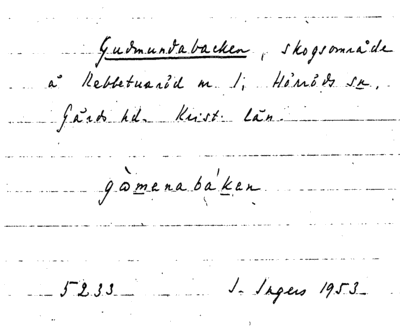 Gudmundabacken, skogsområde
å Nebbetuaröd m. 1, Hörröds sn,
Gärds hd. Krist. län.
gòmenabákan
5233 I. Ingers 1953